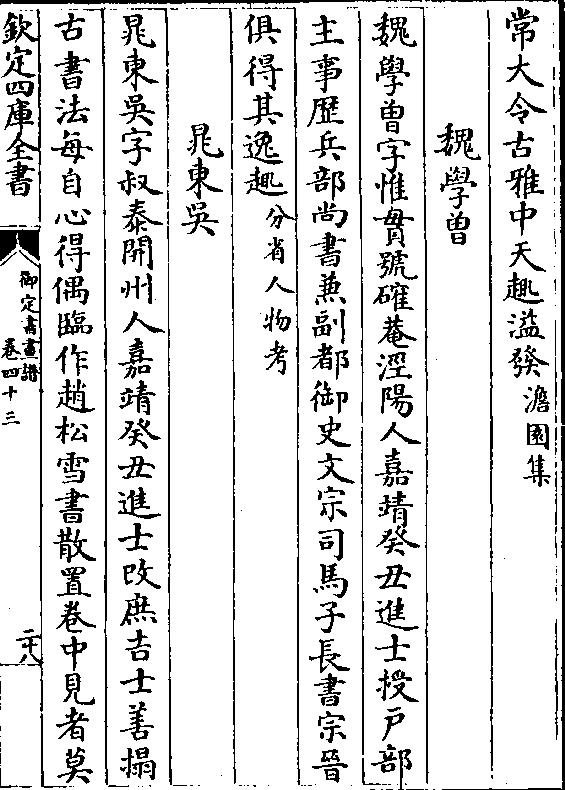 常大令古雅中天趣溢發澹園集
魏學曽
魏學曽字惟貫號確菴涇陽人嘉靖癸丑進士授戸部
主事歴兵部尚書兼副都御史文宗司馬子長書宗晉
俱得其逸趣分省人物考
晁東吳
晁東吳字叔泰開州人嘉靖癸丑進士改庶吉士善搨
古書法每自心得偶臨作趙松雪書散置卷中見者莫
欽定四庫全書
御定書畫譜
卷四十三
二十八